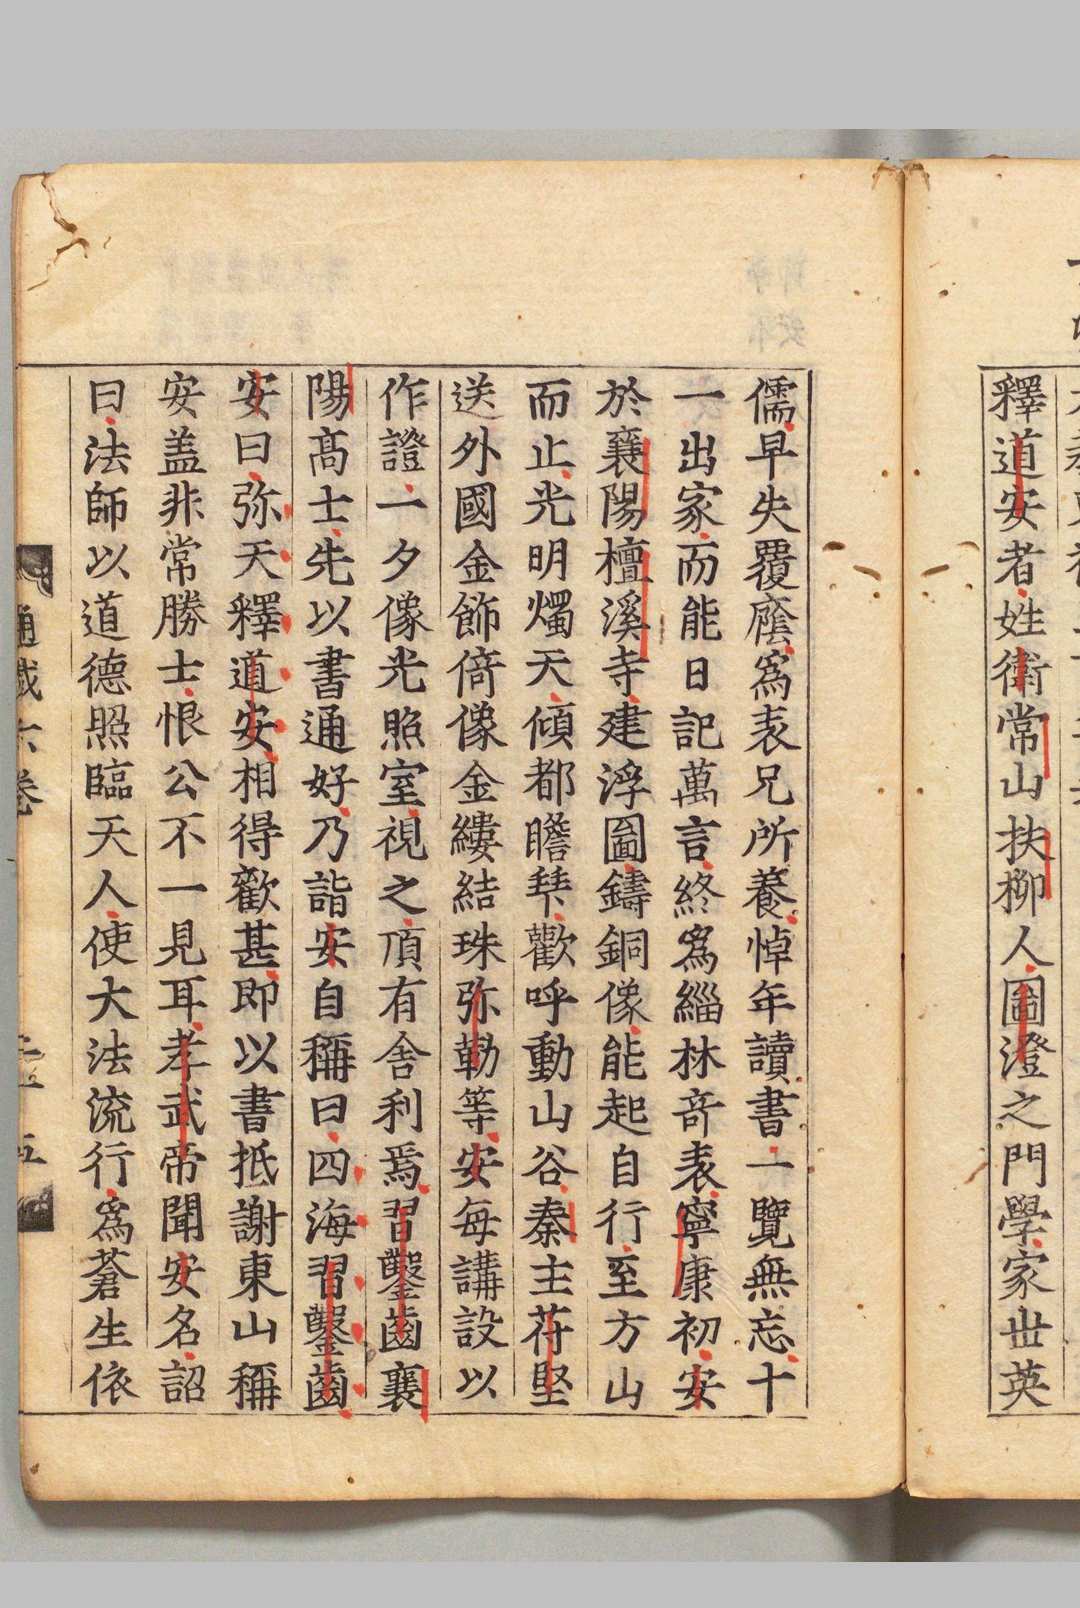 釋道安者姓衛常山扶柳人圖澄之門學家世英
儒早失覆廕爲表兄所養悼年讀書一覽無忘十
一出家而能日記萬言終爲緇林竒表寧康初安
於襄陽檀溪寺建浮圖鑄銅像能起自行至方山
而止光明燭天傾都瞻拜歡呼動山谷秦主苻堅
送外國金飾倚像金縷結珠弥勒等安每講設以
作證一夕像光照室視之頂有舍利焉習鑿齒襄
陽髙士先以書通好乃詣安自稱曰四海習鑿齒
安曰弥天釋道安相得歡甚即以書抵謝東山稱
安盖非常勝士恨公不一見耳孝武帝聞安名詔
曰法師以道德照臨天人使大法流行爲蒼生依
通載六卷